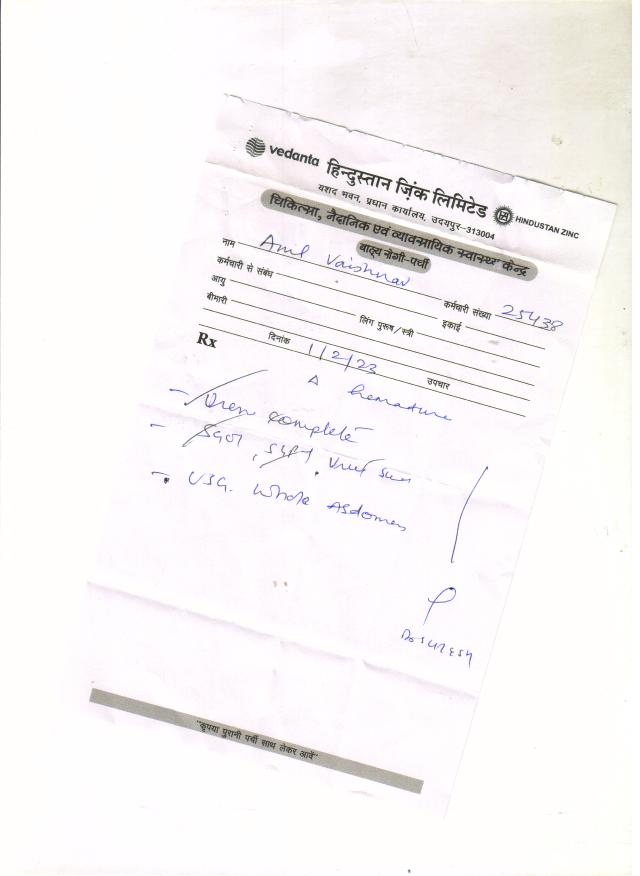 vedanta हिन्दुस्तान ज़िंक लिमिटेड HINDUSTAN ZINC
यशद भवन, प्रधान कार्यालय, उदयपुर-313004
चिकित्सा, नैदानिक एवं व्यावसायिक स्वास्थ्य केन्द्र
बाह्य रोगी-पर्ची
नाम Anil Vaishnav कर्मचारी संख्या 25438
कर्मचारी से संबंध इकाई
आयु लिंग पुरूष/स्त्री
बीमारी
Rx दिनांक 1/2/23 उपचार
Δ hemature
- complete
- SGOT, SGPT,
- USG. Whole Abdomen
Dr SURESH
"कृपया पुरानी पर्ची साथ लेकर आवें"